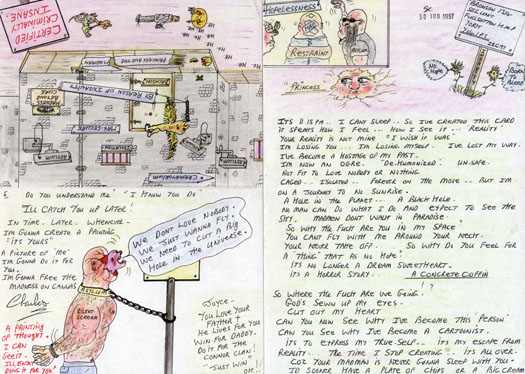 CERTIFIED
CRIMINALLY
INSANE.
HA
HA
HA
BY REASON OF INSANITY
MAX SECURE
ASYLUM
ASYLUM
Crematorium
& DO YOU UNDERSTAND ME "I KNOW YOU DO"
I'LL CATCH YOU UP LATER.
IN TIME. LATER. WHENEVER.
I'M GONNA CREATE A PAINTING
"ITS YOURS"
A PICTURE OF 'ME'
I'M GONNA DO IT FOR
YOU.
I'M GONNA FREE THE
MADNESS ON CANVAS
Charles
A PAINTING
OF THOUGHT.
I CAN
SEE IT.
WE DONT LOVE NOBODY.
WE JUST WANNA FLY.
WE NEED TO CUT A BIG
HOLE IN THE UNIVERSE.
ASYLUM
SILENT
SCREAM
JOYCE.
YOU LOVE YOUR
FATHER &
HE LIVES FOR YOU
WIN FOR DADDY.
DO IT FOR THE
CONNOR CLAN.
"JUST WIN"
HOPELESSNESS.
RESTRAINT
ASYLUM
30 JUN 1997
NO
HOPE.
BORN
TO
BLEED
"PRINCESS"
ITS 11 15 P.M.. I CANT SLEEP.. SO I'VE CREATED THIS CARD
IT SPEAKS HOW I FEEL... HOW I SEE IT... 'REALITY'
YOUR REALITY IS NOT MINE. I WISH IT WAS.
IM LOSING YOU... IM LOSING MYSELF. I'VE LOST MY WAY.
I'VE BECOME A HOSTAGE OF MY PAST.
IM NOW AN OGRE. 'DE-HUMANIZED'. UN-SAFE.
NOT FIT TO LOVE NOBODY OR NOTHING
CAGED... ISOLATED.. FOREVER ON THE MOVE.. BUT IM
ON A JOURNEY TO NO SUNRISE.
A HOLE IN THE PLANET... A BLACK HOLE.
NO MAN CAN DO WHAT I DO AND EXPECT TO SEE THE
SKY. MADMEN DONT WALK IN PARADISE.
SO WHY THE FUCK ARE YOU IN MY SPACE
YOU CANT FLY WITH ME AROUND YOUR NECK.
YOUR NEVER TAKE OFF.. SO WHY DO YOU FEEL FOR
A 'THING' THAT AS NO HOPE.
ITS NO LONGER A DREAM SWEETHEART.
ITS A HORROR STORY. A CONCRETE COFFIN
SO WHERE THE FUCK ARE WE GOING.
GOD'S SEWN UP MY EYES.
CUT OUT MY HEART
CAN YOU NOW SEE WHY I'VE BECOME THIS 'PERSON'
CAN YOU SEE WHY I'VE BECOME A CARTOONIST.
ITS TO EXPRESS MY TRUE-SELF.. ITS MY ESCAPE FROM
REALITY. THE TIME I STOP CREATING.. ITS ALL OVER.
COZ YOUR MADMAN IS NEVER GONNA SLEEP WITH YOU
ID SOONER HAVE A PLATE OF CHIPS OR A BIG CREAM